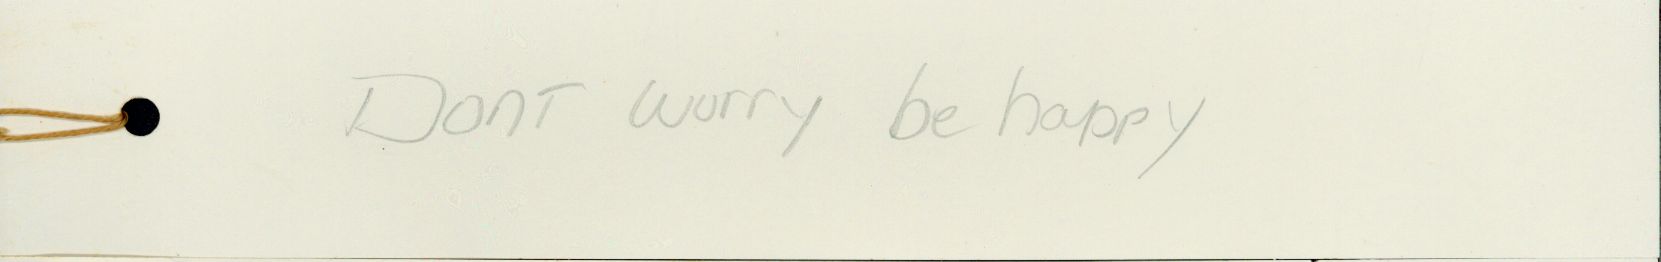 Dont worry be happy